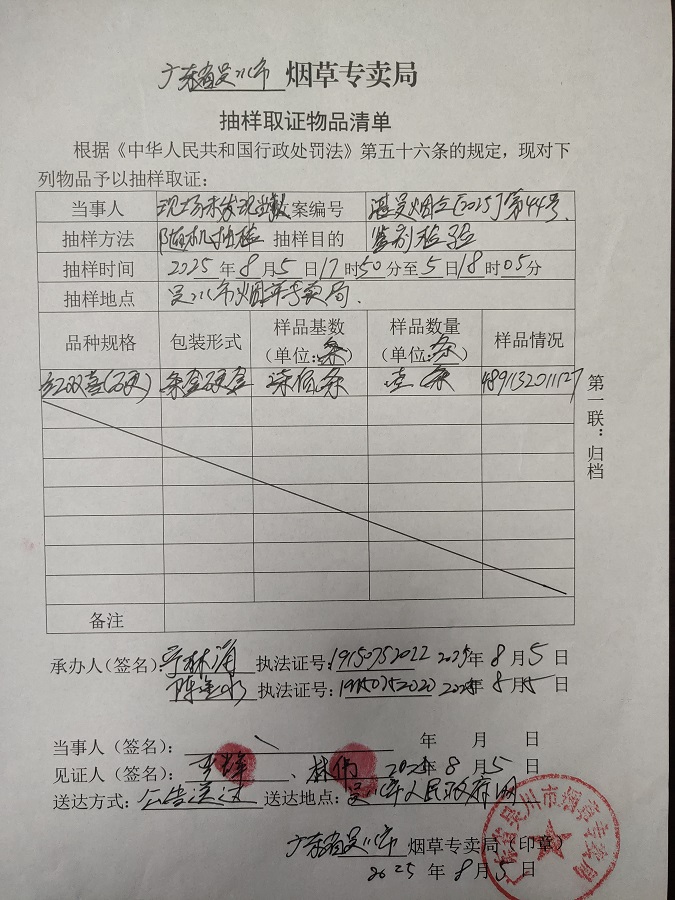 广东省吴川市 烟草专卖局
抽样取证物品清单
根据《中华人民共和国行政处罚法》第五十六条的规定，现对下
列物品予以抽样取证：
当事人 现场未发现 案编号 湛吴烟立[2025]第44号
抽样方法 随机抽检 抽样目的 鉴别检验
抽样时间 2025年8月5日17时50分至5日18时05分
抽样地点 吴川市烟草专卖局.
品种规格 包装形式 样品基数（单位:条） 样品数量（单位:条） 样品情况
红双喜(硬) 条盒硬盒 柒佰条 壹条 4891132011127
第一联：归档
备注
承办人（签名）： 执法证号：19150752022 2025年8月5日
执法证号：19150752020 2025年8月5日
当事人（签名）： 年 月 日
见证人（签名）： 、林伟 2025年8月5日
送达方式：公告送达 送达地点：吴川市人民政府网
广东省吴川市 烟草专卖局（印章）
2025年8月5日
广东省吴川市烟草专卖局